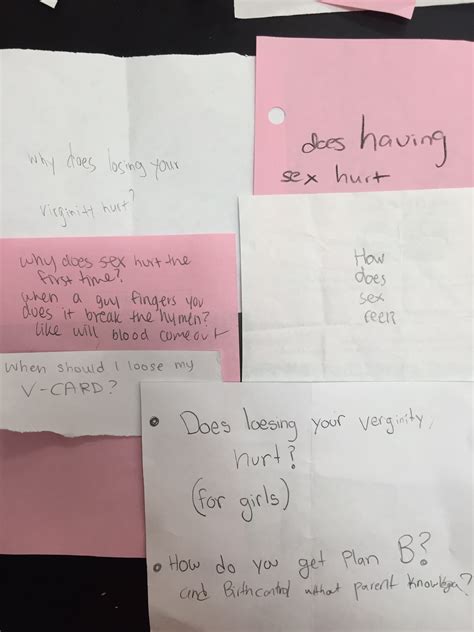 why does losing your
virginity hurt?
does having
sex hurt
why does sex hurt the
first time?
when a guy fingers you
does it break the hymen?
like will blood come out
How
does
sex
feel?
When should I loose my
V-CARD?
Does loesing your verginity
hurt?
(for girls)
How do you get Plan B?
and Birthcontrol without parent